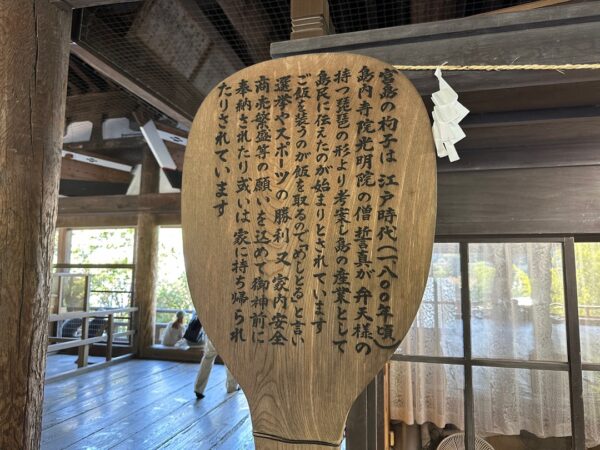 宮島の杓子は 江戸時代(一八〇〇年頃)
島内寺院光明院の僧誓真が弁天様の
持つ琵琶の形より考案し島の産業として
島民に伝えたのが始まりとされています
ご飯を装うのが飯を取るので「めしとる」と言い
選挙やスポーツの勝利 又 家内安全
商売繁盛等の願いを込めて御神前に
奉納されたり或いは 家に持ち帰られ
たりされています